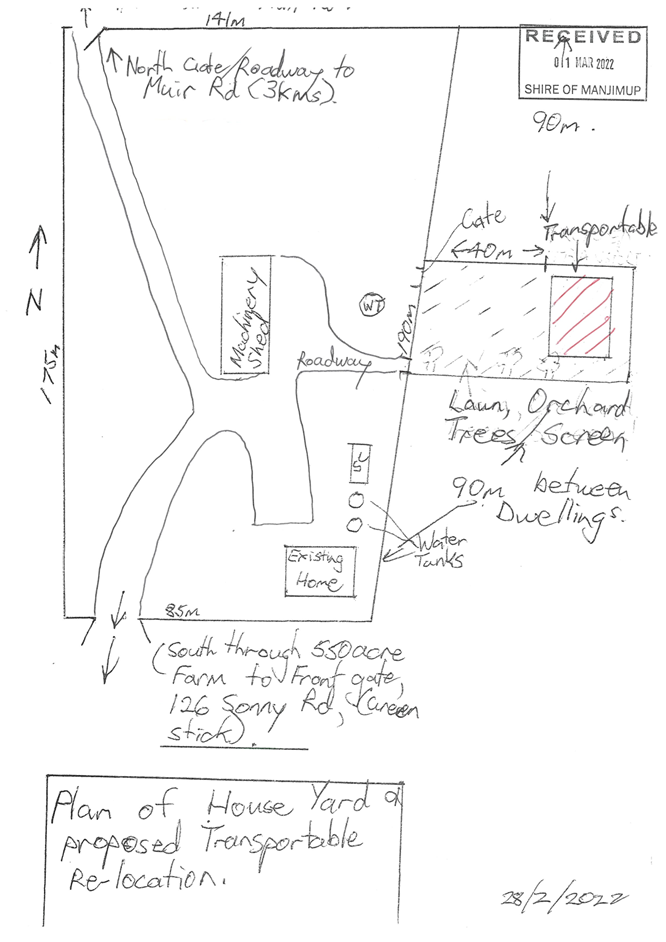 141m
RECEIVED
01 MAR 2022
SHIRE OF MANJIMUP
North Gate/Roadway to
Muir Rd (3kms).
90m.
Gate
Transportable
40m
N
WT
Machinery
Shed
190m
175m
Roadway
Lawn, Orchard
Trees/Screen
90m between
Dwellings.
Water
Tanks
Existing
Home
85m
(South through 550acre
Farm to Front gate,
126 Sonny Rd, (Green
stick).
Plan of House Yard &
proposed Transportable
Re-location.
28/2/2022